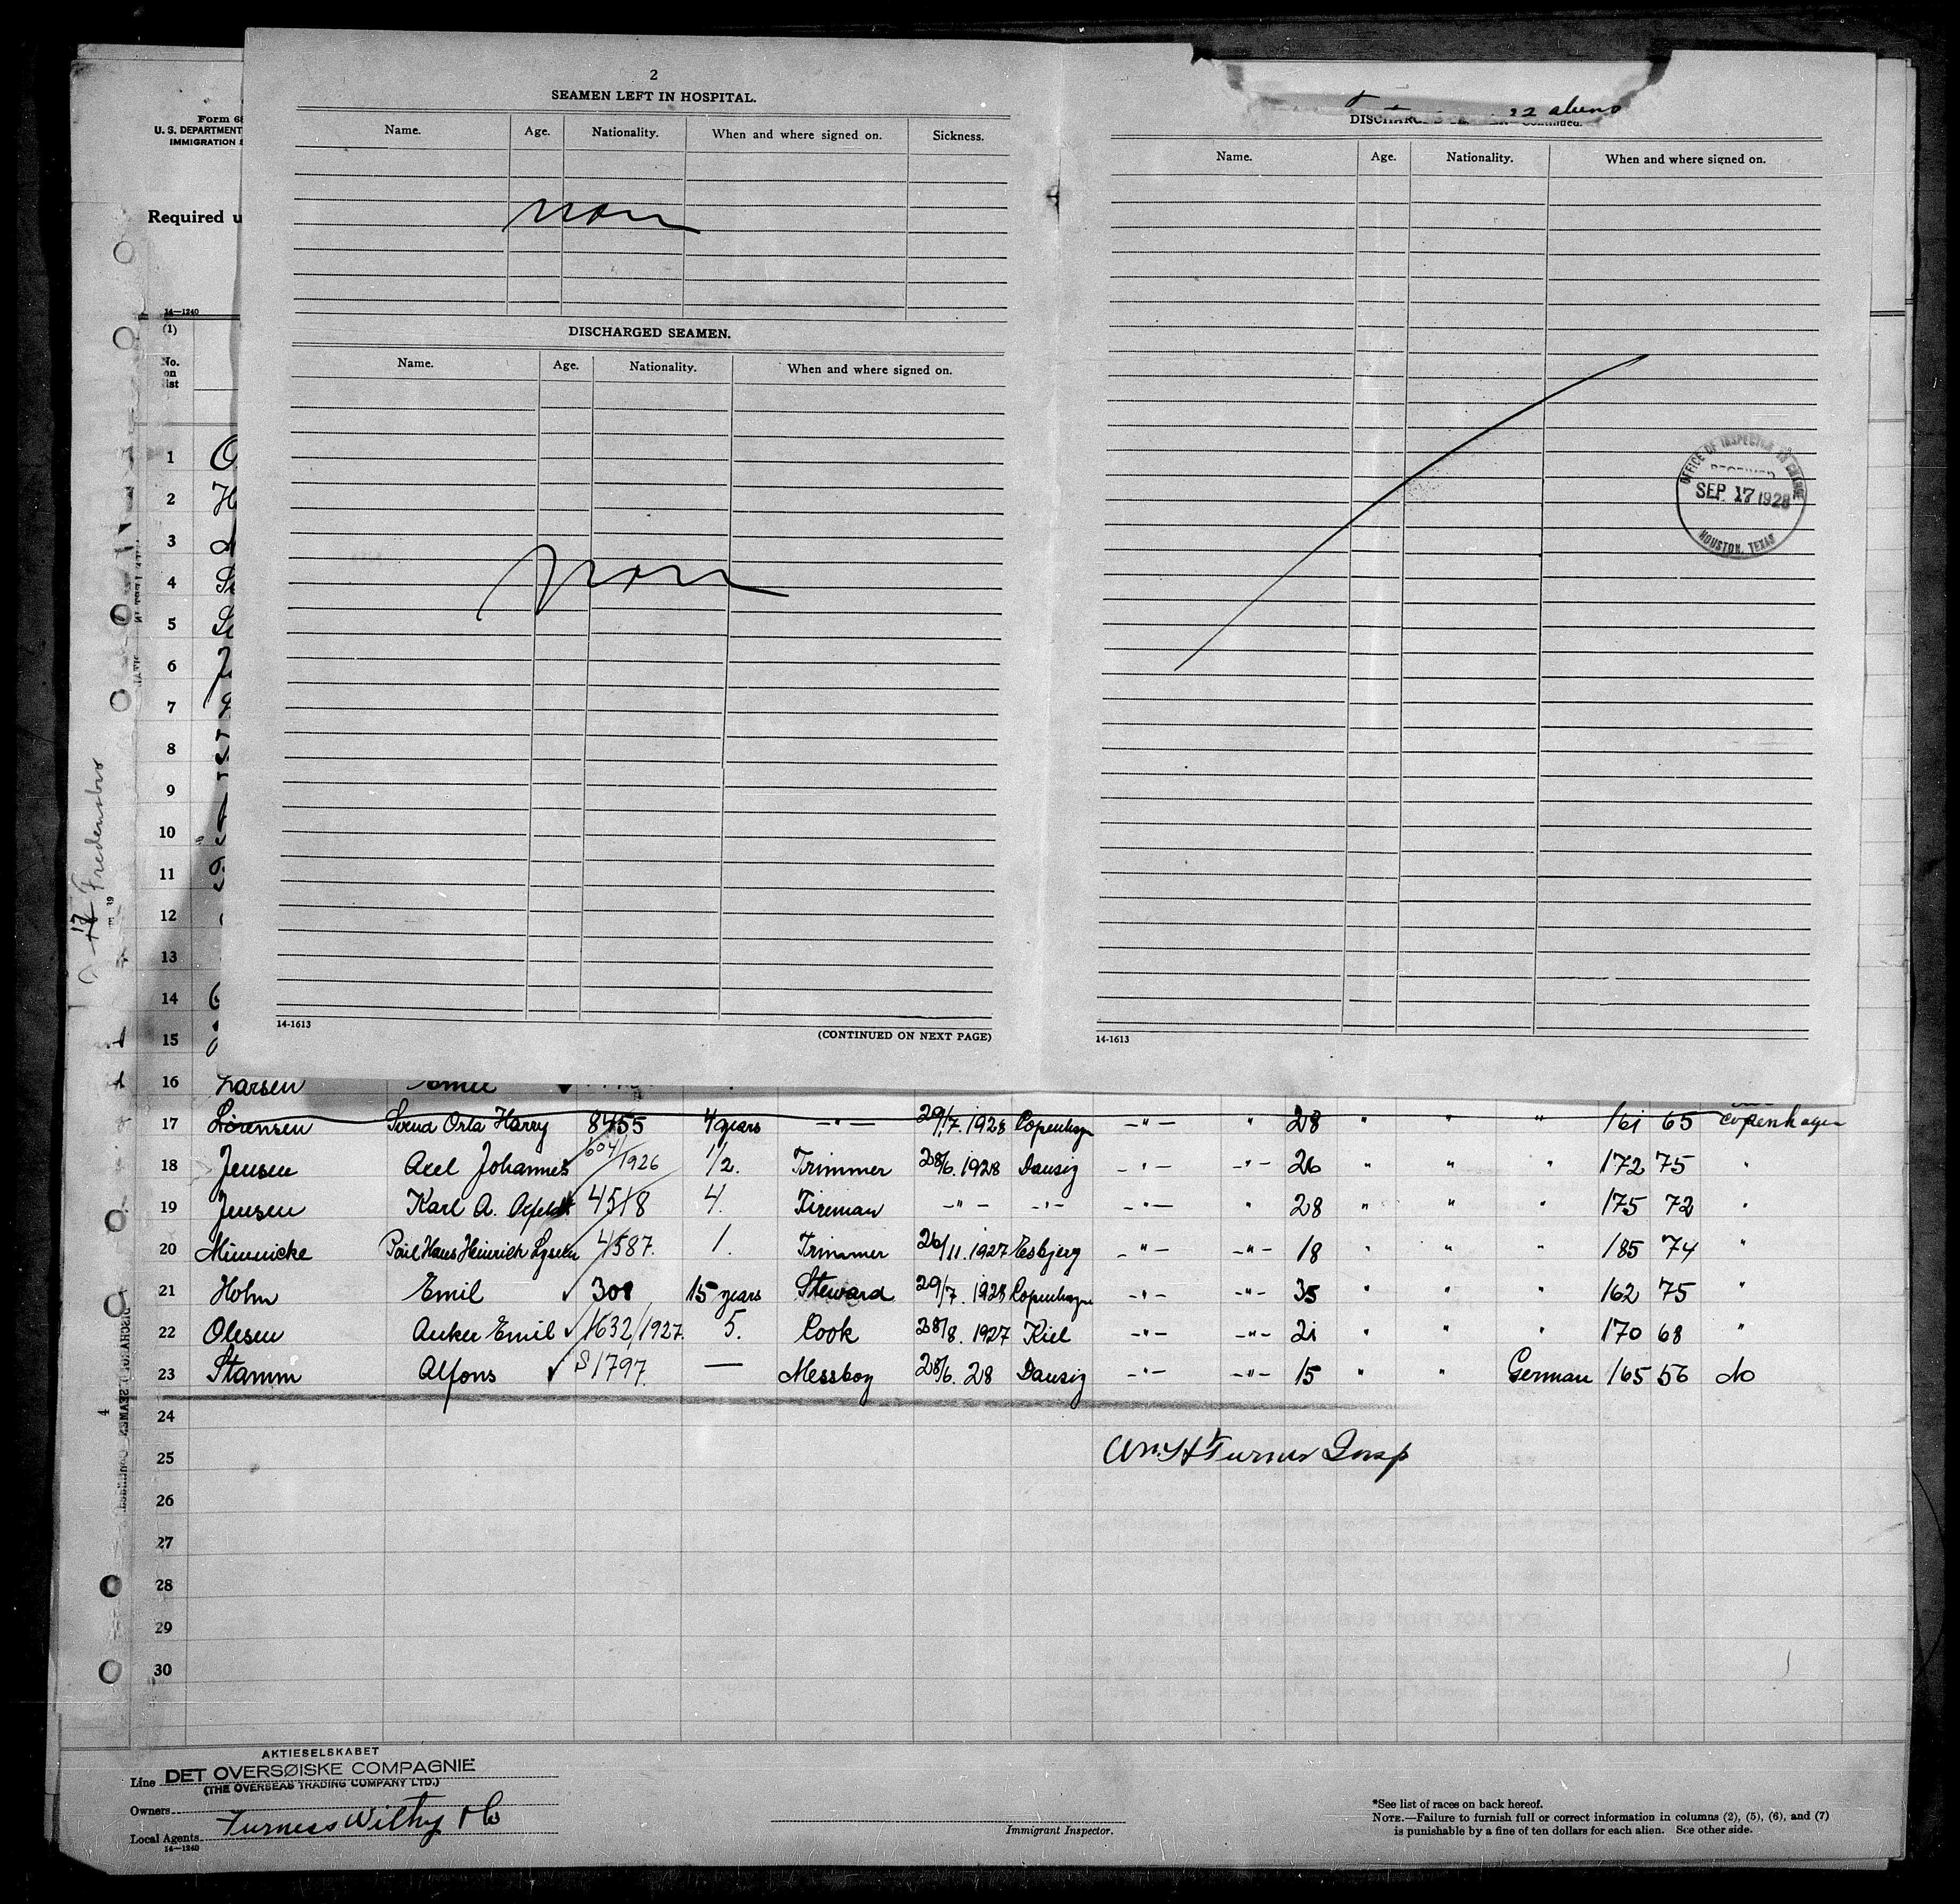 Form 68
U. S. DEPARTMENT
IMMIGRATION
Required u
14—1240
(1)
No.
on
list
2
SEAMEN LEFT IN HOSPITAL.
Name. Age. Nationality. When and where signed on. Sickness.
non
DISCHARGED SEAMEN.
Name. Age. Nationality. When and where signed on.
non
14-1613
(CONTINUED ON NEXT PAGE)
22 aliens
Continued.
Name. Age. Nationality. When and where signed on.
OFFICE OF INSPECTOR IN CHARGE
RECEIVED
SEP 17 1928
HOUSTON, TEXAS
14-1613
1
2
3
4
5
6
7
8
9
10
11
12
13
14
15
16 Larsen Emil
17 Sörensen Svend Orla Harry 8455 4 years -"- 29/7. 1928 Copenhagen -"- " 28 " " " 161 65 Copenhagen
18 Jensen Axel Johannes 604/1926 1/2. Trimmer 28/6. 1928 Danzig -"- -"- 26 " " " 172 75 "
19 Jensen Karl A. 4518 4. Fireman -"- -"- -"- " 28 " " " 175 72 "
20 Münnicke Poil Hans Heinrich 4587. 1. Trimmer 26/11. 1927 Esbjerg -"- -"- 18 " " " 185 74 "
21 Holm Emil 308 15 years Steward 29/7. 1928 Copenhagen -"- -"- 35 " " " 162 75 "
22 Olesen Anker Emil 1632/1927. 5. Cook 28/8. 1927 Kiel -"- -"- 21 " " " 170 68 "
23 Stamm Alfons S 1797. — Messboy 28/6. 28 Danzig -"- -"- 15 " " German 165 56 do
24
25 Wm H Turner Insp
26
27
28
29
30
17 Fredensbro
AKTIESELSKABET
Line DET OVERSØISKE COMPAGNIE
(THE OVERSEAS TRADING COMPANY LTD.)
Owners
Local Agents Furness Withy & Co
14—1240
Immigrant Inspector.
*See list of races on back hereof.
NOTE.—Failure to furnish full or correct information in columns (2), (5), (6), and (7)
is punishable by a fine of ten dollars for each alien. See other side.